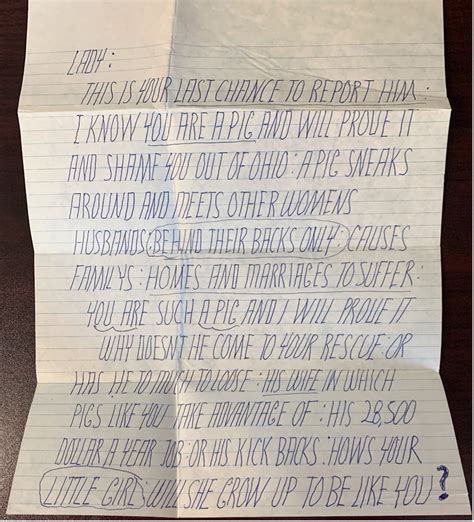 LADY:
THIS IS YOUR LAST CHANCE TO REPORT HIM:
I KNOW YOU ARE A PIG AND WILL PROVE IT
AND SHAME YOU OUT OF OHIO: A PIG SNEAKS
AROUND AND MEETS OTHER WOMENS
HUSBANDS: BEHIND THEIR BACKS ONLY: CAUSES
FAMILYS: HOMES AND MARRIAGES TO SUFFER:
YOU ARE SUCH A PIG AND I WILL PROVE IT
WHY DOESN'T HE COME TO YOUR RESCUE: OR
HAS HE TO MUCH TO LOOSE: HIS WIFE IN WHICH
PIGS LIKE YOU TAKE ADVANTAGE OF: HIS 28,500
DOLLAR A YEAR JOB: OR HIS KICK BACKS: HOWS YOUR
LITTLE GIRL: WILL SHE GROW UP TO BE LIKE YOU?